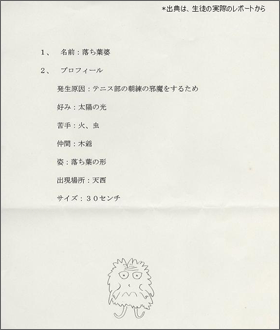 *出典は、生徒の実際のレポートから
1、 名前:落ち葉婆
2、 プロフィール
発生原因:テニス部の朝練の邪魔をするため
好み:太陽の光
苦手:火、虫
仲間:木霊
姿:落ち葉の形
出現場所:天西
サイズ:30センチ